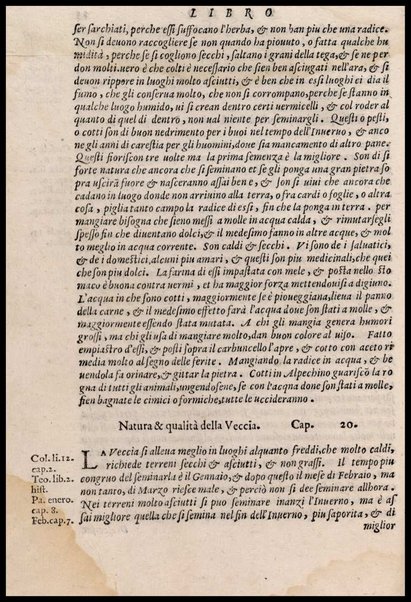 LIBRO
ser sarchiati, perche essi suffocano l'herba, & non han piu che una radice.
Non si deuono raccogliere se non quando ha piouuto, o fatta qualche hu
midità, perche se si cogliono secchi, saltano i grani della tega, & se ne per
don molti. uero è che colti è necessario che sien ben asciugati nell'ara, & si
deuon riporre in luoghi molto asciutti, & è ben che in essi luoghi ei dia il
fumo, che gli conserua molto, che non si corrompano, perche se stanno in
qualche luogo humido, ui si crean dentro certi uermicelli, & col roder al
quanto di quel di dentro, non ual niente per seminargli. Questi o pesti,
o cotti son di buon nedrimento per i buoi nel tempo dell'Inuerno, & anco
ne gli anni di carestia per gli huomini, doue sia mancamento di altro pane.
Questi fioriscon tre uolte ma la prima semenza è la migliore. Son di sì
forte natura che ancora che si seminano et se gli ponga una gran pietra so
pra uscirà fuore & nasceranno assai bene, & son si uiui che ancora che
cadano in luogo donde non arriuino alla terra, o fra cardi o foglie, o altra
cosa, piglia tanto campo la radice di essi, fin che la ponga in terra. per
mangiare bisogna che sieno messi a molle in acqua calda, & rimutarsegli
spesso fin che diuentano dolci, & il medesimo fanno in altre acque, & mol
to meglio in acqua corrente. Son caldi & secchi. Vi sono de i saluatici,
& de i domestici, alcuni piu amari, & questi son piu medicinali, che quei
che son piu dolci. La farina di essi impastata con mele, & posta nello sto
maco è buona contra uermi, et ha maggior forza mettendouisi a digiuno.
L'acqua in che sono cotti, maggiormente se è piueggiana, lieua il panno
della carne, & il medesimo effetto farà l'acqua doue son stati a molle, &
maggiormente essendo stata mutata. A chi gli mangia genera humori
grossi, ma chi gli usa di mangiare molto, dan buon colore al uiso. Fatto
empiastro d'essi, & posti sopra il carbuncello l'apre, & cotto con aceto ri
media molto al segno delle ferite. Mangiando la radice in acqua, & be
uendola fa orinare, & gittar la pietra. Cotti in Alpechino guariscō la ro
gna di tutti gli animali, ungendosene, se con l'acqua doue son stati a molle,
sien bagnate le cimici o formiche, tutte le uccideranno.
Natura & qualità della Veccia. Cap. 20.
LA Veccia si alleua meglio in luoghi alquanto freddi, che molto caldi,
richiede terreni secchi & asciutti, & non grassi. Il tempo piu
congruo del seminarla è il Gennaio, & dopo questo il mese di Febraio, ma
non tanto, di Marzo riesce male, & perciò non si dee seminare allhora.
Nei terreni molto asciutti si puo seminare inanzi l'Inuerno, ma è as
sai migliore quella che si semina nel fin dell'Inuerno, piu saporita, & di
miglior
Col. li. 12.
cap. 2.
Teo. lib. 2.
hist.
Pa. enero.
cap. 8.
Feb. cap. 7.